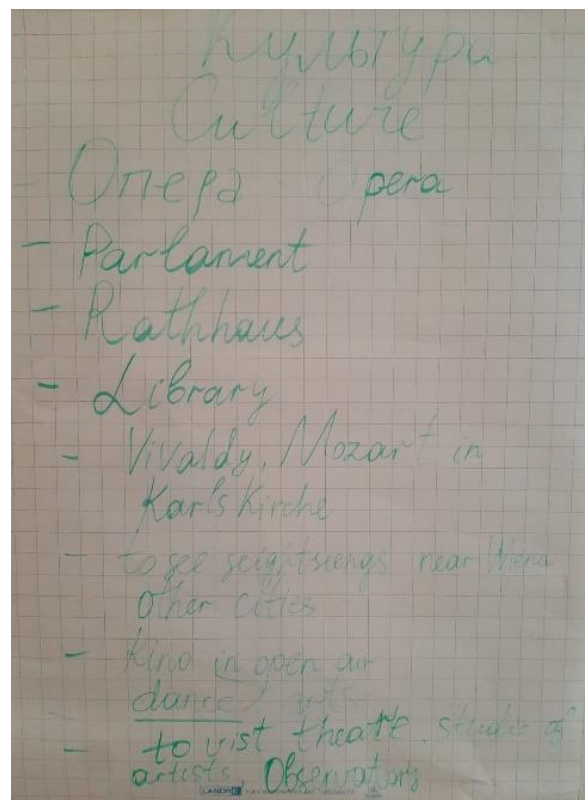 Культура
Culture
- Опера Opera
- Parlament
- Rathhaus
- Library
- Vivaldy, Mozart in
Karls Kirche
- to see seightseengs near Wiena
Other cities
- Kino in open air
dance / arts
- to visit theatre. studio of
artists Observatory
LANDRÉ